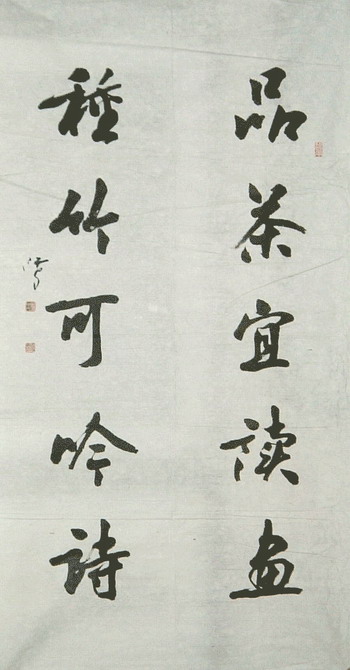 品茶宜读画
種竹可吟詩